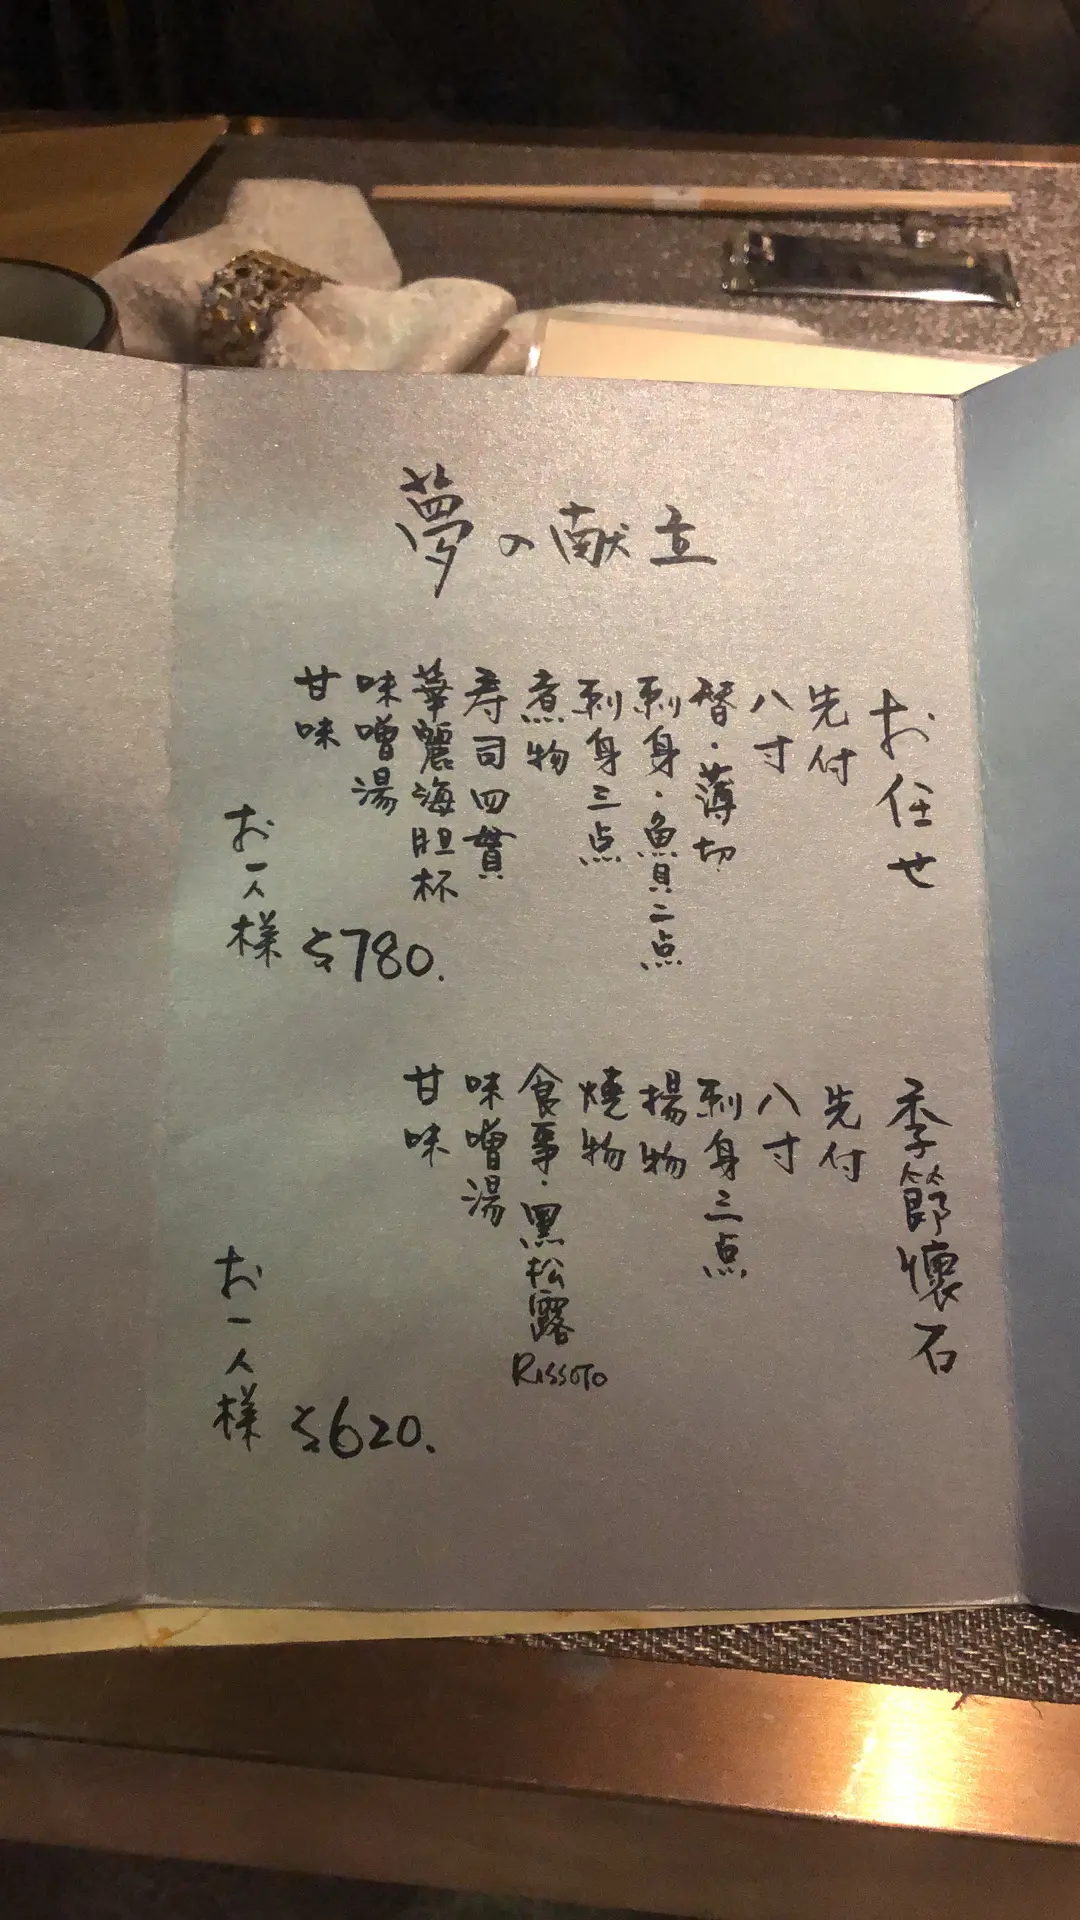 夢の献立
お任せ
先付
八寸
替・薄切
刺身・魚貝二点
刺身三点
煮物
寿司四貫
華麗海胆杯
味噌湯
甘味
お一人様 $780.
季節懐石
先付
八寸
刺身三点
揚物
焼物
食事・黒松露 RISSOTO
味噌湯
甘味
お一人様 $620.